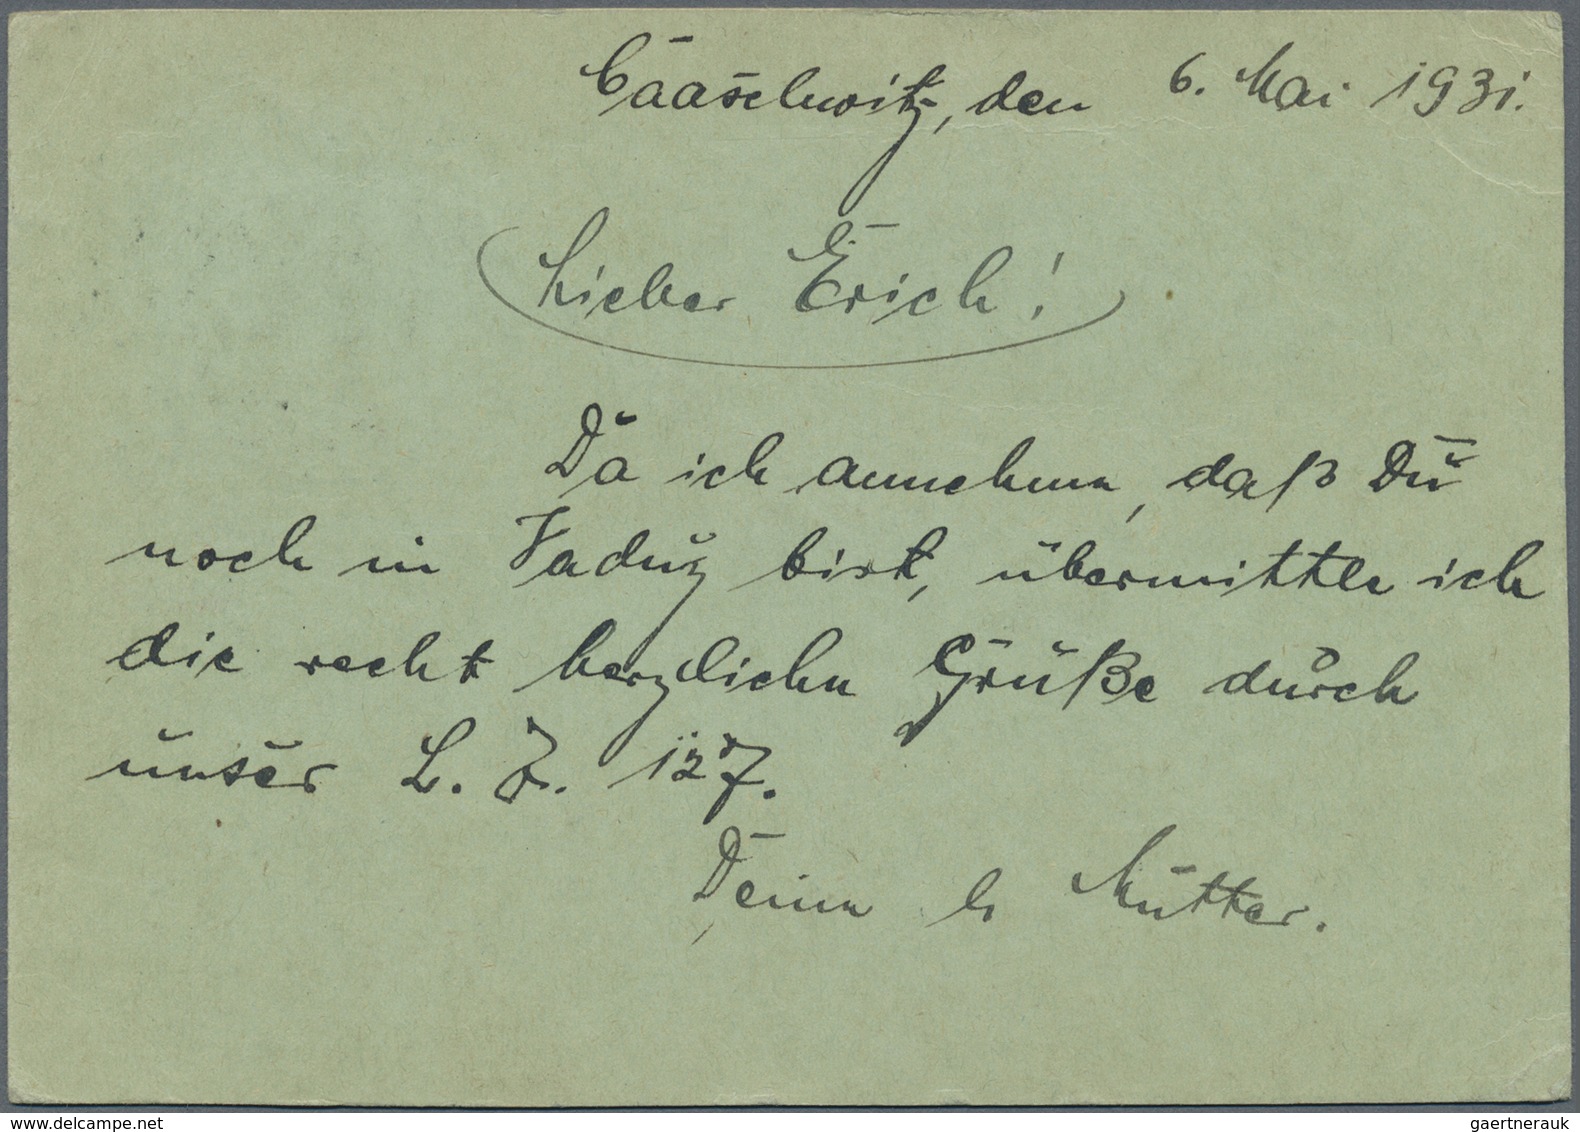 Caaschwitz, den 6. Mai 1931.
Lieber Erich!
Da ich annehme, daß Du
noch in Vaduz bist, übermittle ich
die recht herzliche Grüße durch
unser L. Z. 127.
Deine lb Mutter.
www.delcampe.net
gaertnerauk